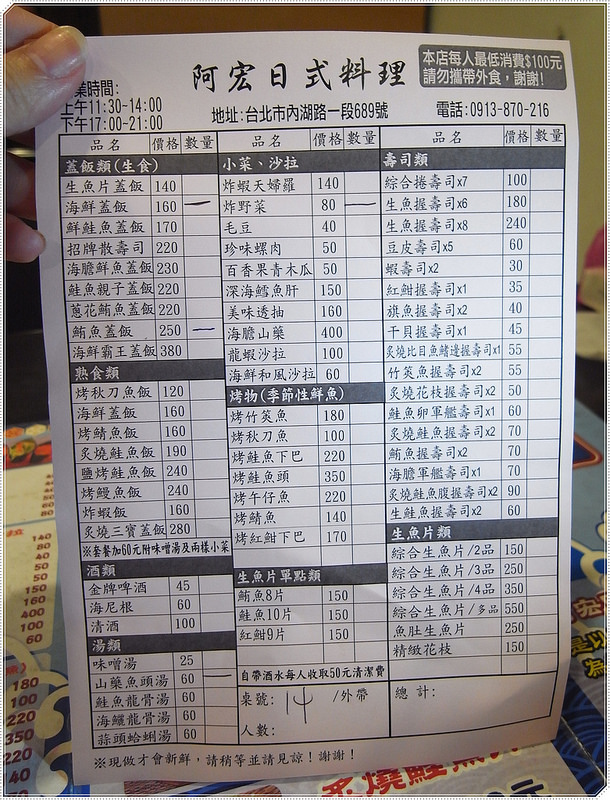 阿宏日式料理
本店每人最低消費$100元
請勿攜帶外食，謝謝！
業時間：
上午11:30-14:00
下午17:00-21:00
地址：台北市內湖路一段689號
電話：0913-870-216
品名 價格 數量
蓋飯類（生食）
生魚片蓋飯 140
海鮮蓋飯 160 一
鮮鮭魚蓋飯 170
招牌散壽司 220
海膽鮮魚蓋飯 230
鮭魚親子蓋飯 220
蔥花鮪魚蓋飯 220
鮪魚蓋飯 250 一
海鮮霸王蓋飯 380
熟食類
烤秋刀魚飯 120
海鮮蓋飯 160
烤鯖魚飯 160
炙燒鮭魚飯 190
鹽烤鮭魚飯 240
烤鰻魚飯 240
炸蝦飯 160
炙燒三寶蓋飯 280
※套餐加60元附味噌湯及兩樣小菜
酒類
金牌啤酒 45
海尼根 60
清酒 100
湯類
味噌湯 25
山藥魚頭湯 60 一
鮭魚龍骨湯 60
海鱺龍骨湯 60
蒜頭蛤蜊湯 60
品名 價格 數量
小菜、沙拉
炸蝦天婦羅 140
炸野菜 80 一
毛豆 40
珍味螺肉 50
百香果青木瓜 50
深海鱈魚肝 150
美味透抽 160
海膽山藥 400
龍蝦沙拉 100
海鮮和風沙拉 60
烤物（季節性鮮魚）
烤竹筴魚 180
烤秋刀魚 100
烤鮭魚下巴 220
烤鮭魚頭 350
烤午仔魚 220
烤鯖魚 140
烤紅魽下巴 170
生魚片單點類
鮪魚8片 150
鮭魚10片 150
紅魽9片 150
自帶酒水每人收取50元清潔費
桌號：14 /外帶
人數：
品名 價格 數量
壽司類
綜合捲壽司x7 100
生魚握壽司x6 180
生魚握壽司x8 240
豆皮壽司x5 60
蝦壽司x2 30
紅魽握壽司x1 35
旗魚握壽司x2 40
干貝握壽司x1 45
炙燒比目魚鰭邊握壽司x1 55
竹筴魚握壽司x2 55
炙燒花枝握壽司x2 50
鮭魚卵軍艦壽司x1 60
炙燒鮭魚握壽司x2 70
鮪魚握壽司x2 70
海膽軍艦壽司x1 70
炙燒鮭魚腹握壽司x2 90
生鮭魚握壽司x2 60
生魚片類
綜合生魚片/2品 150
綜合生魚片/3品 250
綜合生魚片/4品 350
綜合生魚片/多品 550
魚肚生魚片 250
精緻花枝 150
總計：
※現做才會新鮮，請稍等並請見諒！謝謝！
140
80
40
50
50
150
160
400
100
60
180
100
220
350
220